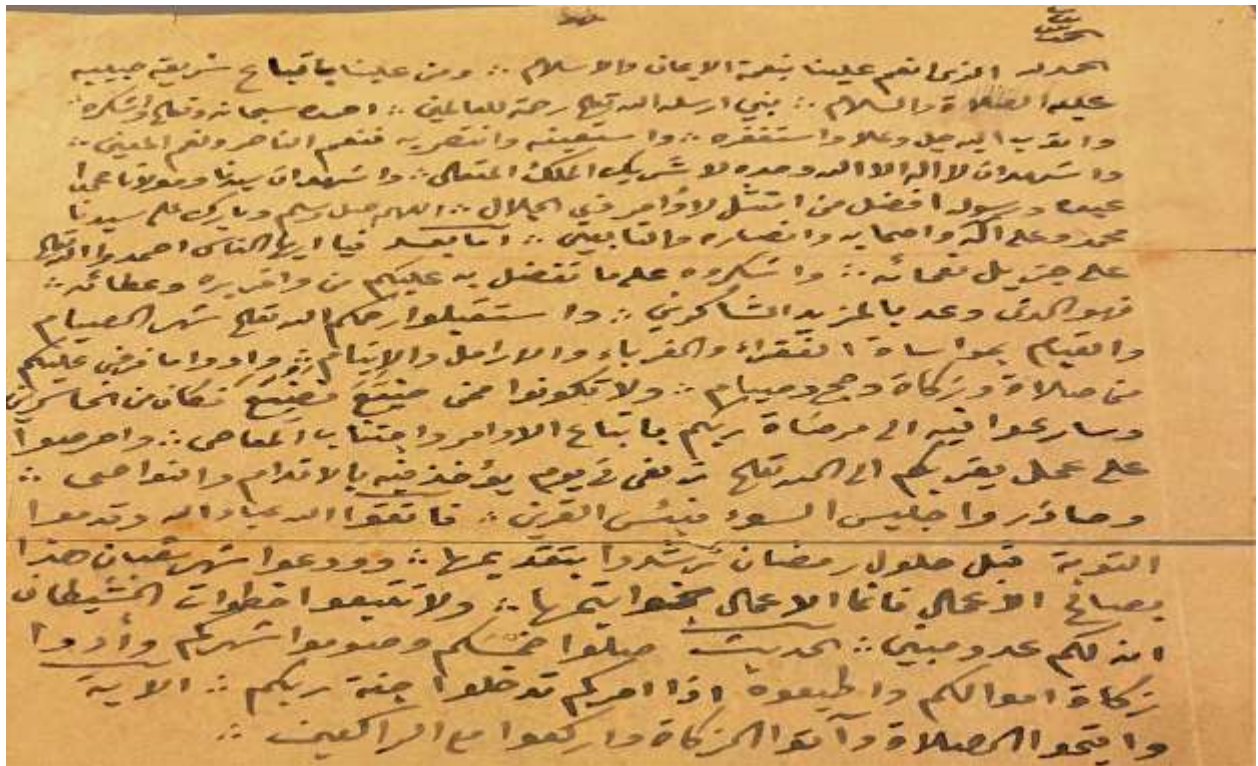 الحمد لله الذي انعم علينا بنعمة الايمان والاسلام ∴ ومن علينا باتباع شريعة حبيبه
عليه الصلاة والسلام ∴ نبي ارسله الله تعالى رحمة للعالمين ∴ احمده سبحانه وتعالى واشكره
واتوب اليه جل وعلا واستغفره ∴ واستعينه وانتصر به فنعم الناصر ونعم المعين ∴
واشهد ان لا اله الا الله وحده لا شريك الملك المتعالى ∴ واشهد ان سيدنا ومولانا محمدا
عبده ورسوله افضل من امتثل لاوامر ذي الجلال ∴ اللهم صل وسلم وبارك على سيدنا
محمد وعلى اله واصحابه وانصاره والتابعين ∴ اما بعد فيا ايها الناس احمدوا الله تعالى
على جزيل نعمائه ∴ واشكروه على ما تفضل به عليكم من وافر بره وعطائه ∴
فهو الذى وعد بالمزيد الشاكرين ∴ واستقبلوا رحمكم الله تعالى شهر الصيام
والقيام بمواساة الفقراء والغرباء والارامل والايتام ∴ وادوا ما فرض عليكم
من صلاة وزكاة وحج وصيام ∴ ولا تكونوا ممن ضيّع فضيّع فكان من الخاسرين
وسارعوا فيه الى مرضاة ربكم باتباع الاوامر واجتناب المعاصى ∴ واحرصوا
على عمل يقربكم الى الله تعالى زلفى في يوم يؤخذ فيه بالاقدام والنواصى ∴
وحاذروا جليس السوء فبئس القرين ∴ فاتقوا الله عباد الله وقدموا
التوبة قبل حلول رمضان ترشدوا بتقديمها ∴ وودعوا شهر شعبان هذا
بصالح الاعمال فانما الاعمال بخواتيمها ∴ ولا تتبعوا خطوات الشيطان
انه لكم عدو مبين ∴ الحديث صلوا خمسكم وصوموا شهركم وأدوا
زكاة اموالكم واطيعوا اذا امركم تدخلوا جنة ربكم ∴ الاية
واقيموا الصلاة وآتوا الزكاة واركعوا مع الراكعين ∴